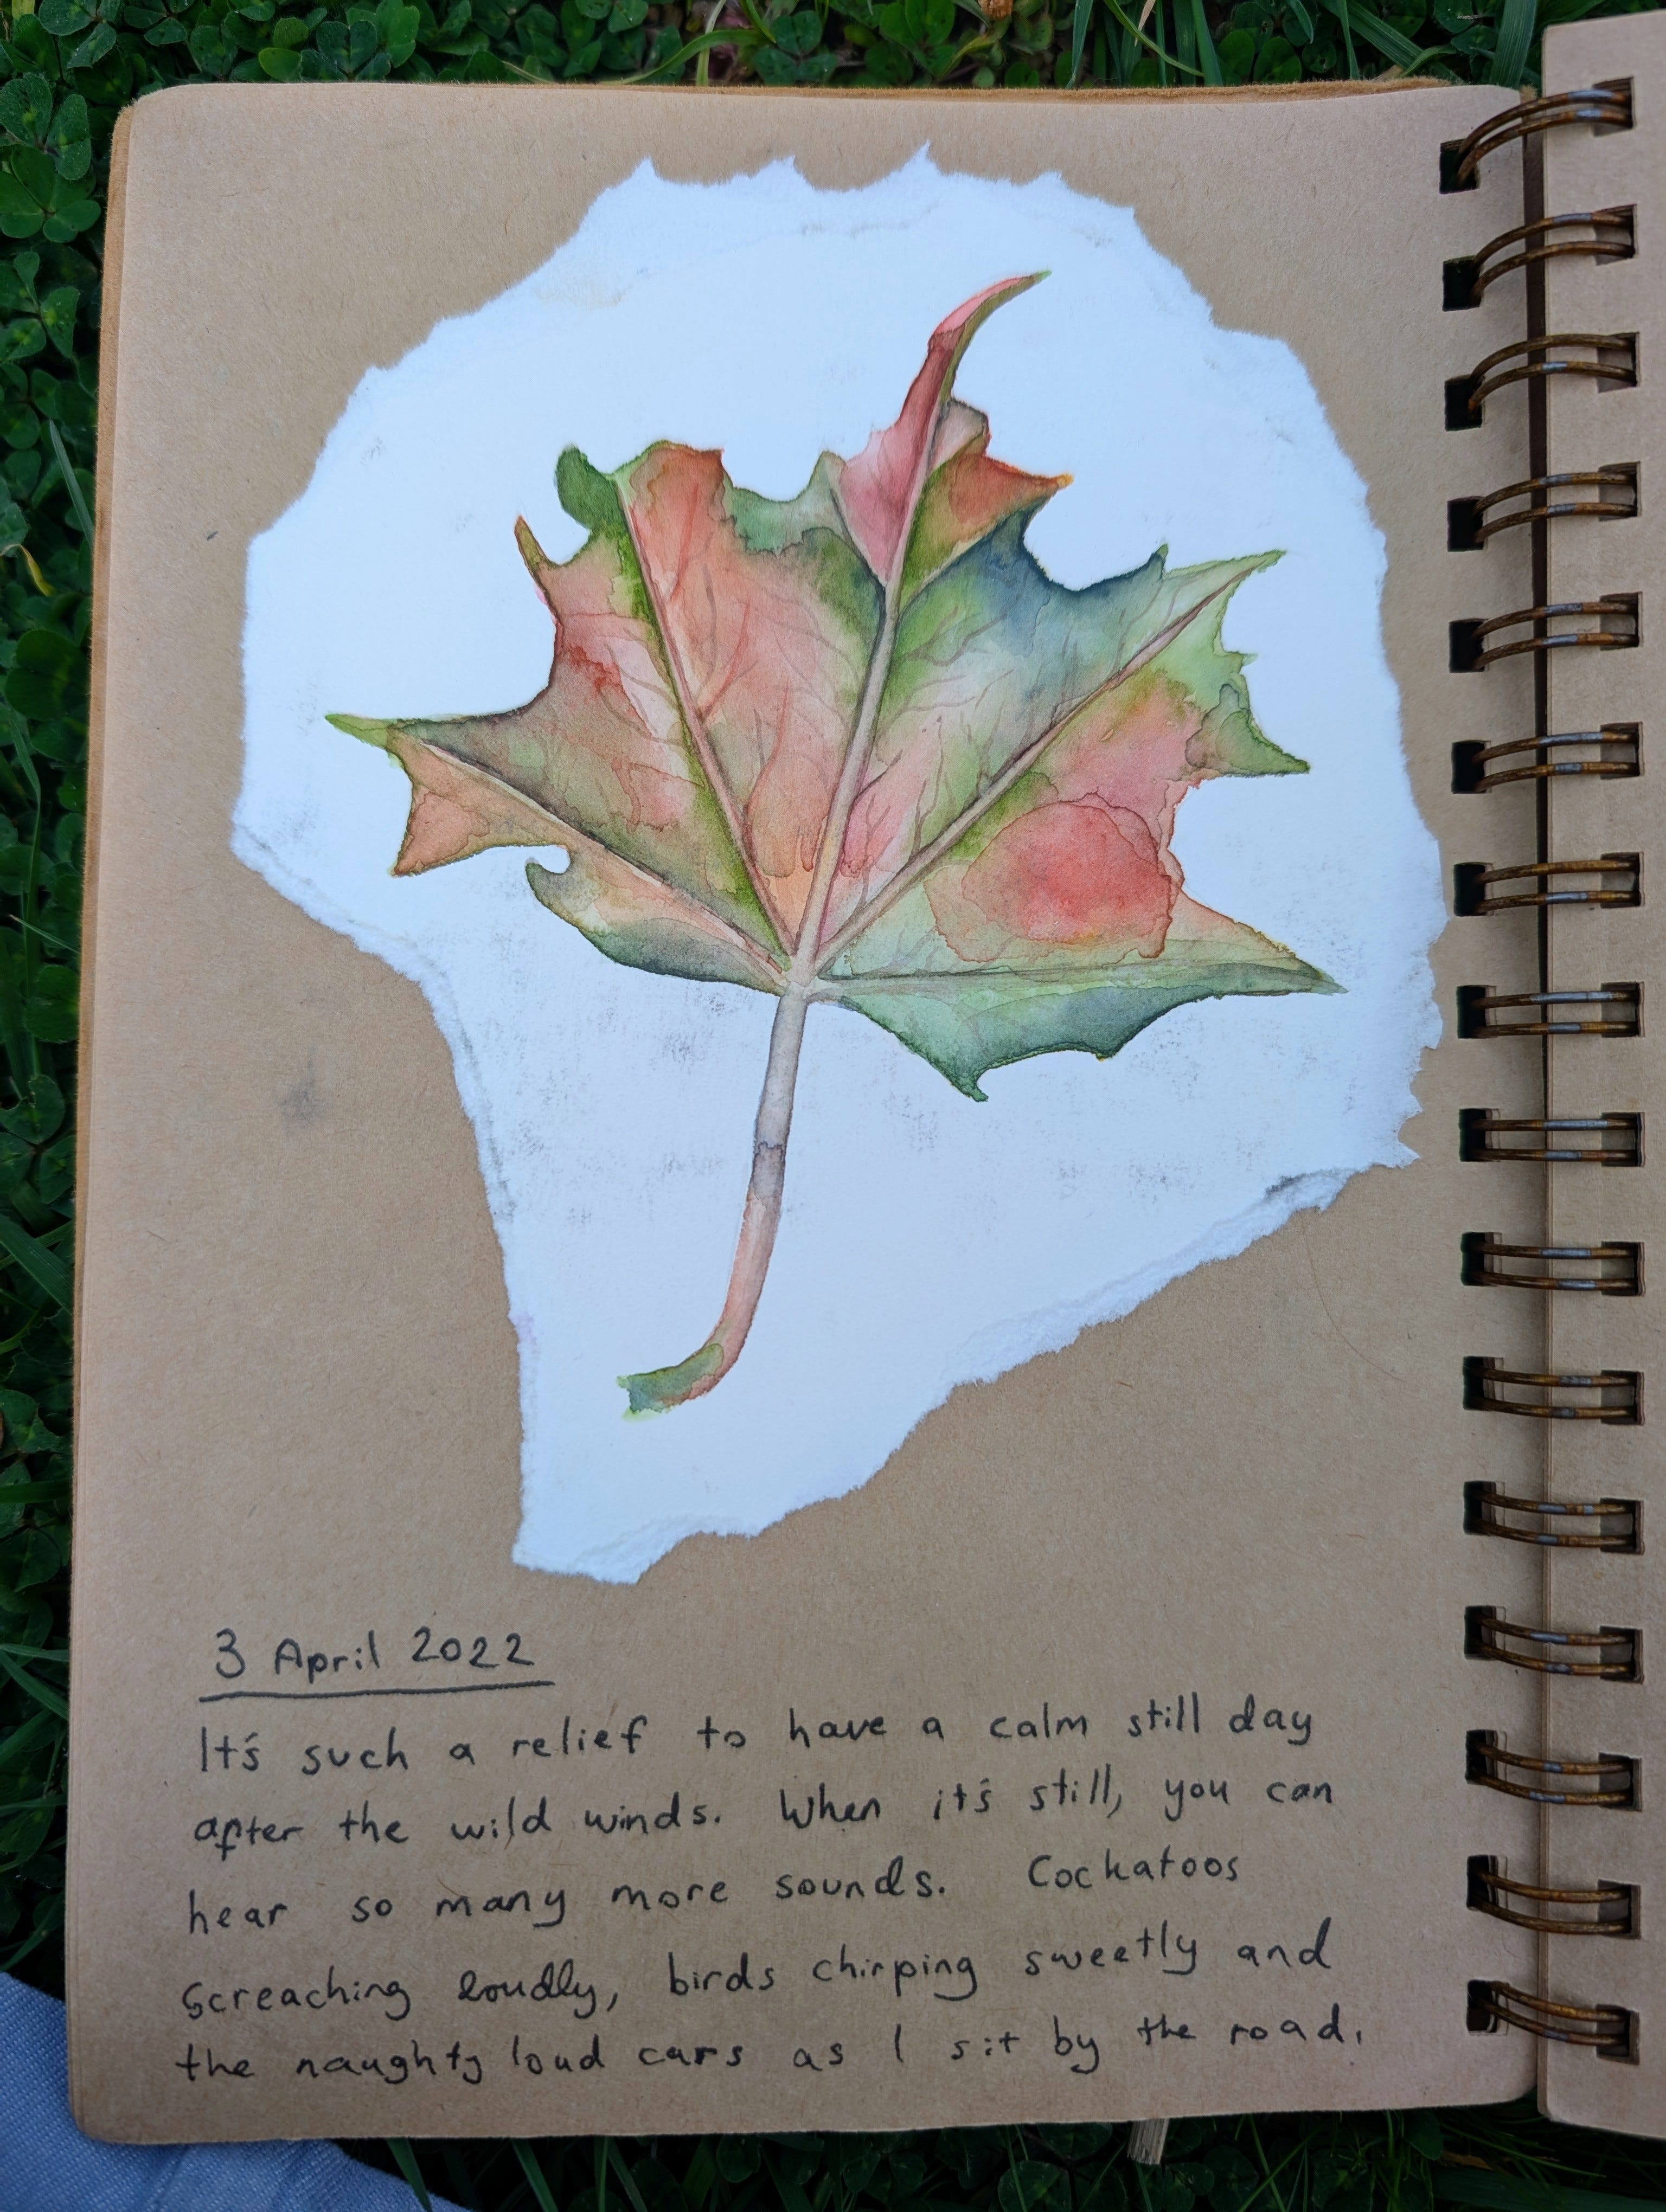 3 April 2022
It's such a relief to have a calm still day
after the wild winds. When it's still, you can
hear so many more sounds. Cockatoos
screaching loudly, birds chirping sweetly and
the naughty loud cars as I sit by the road.